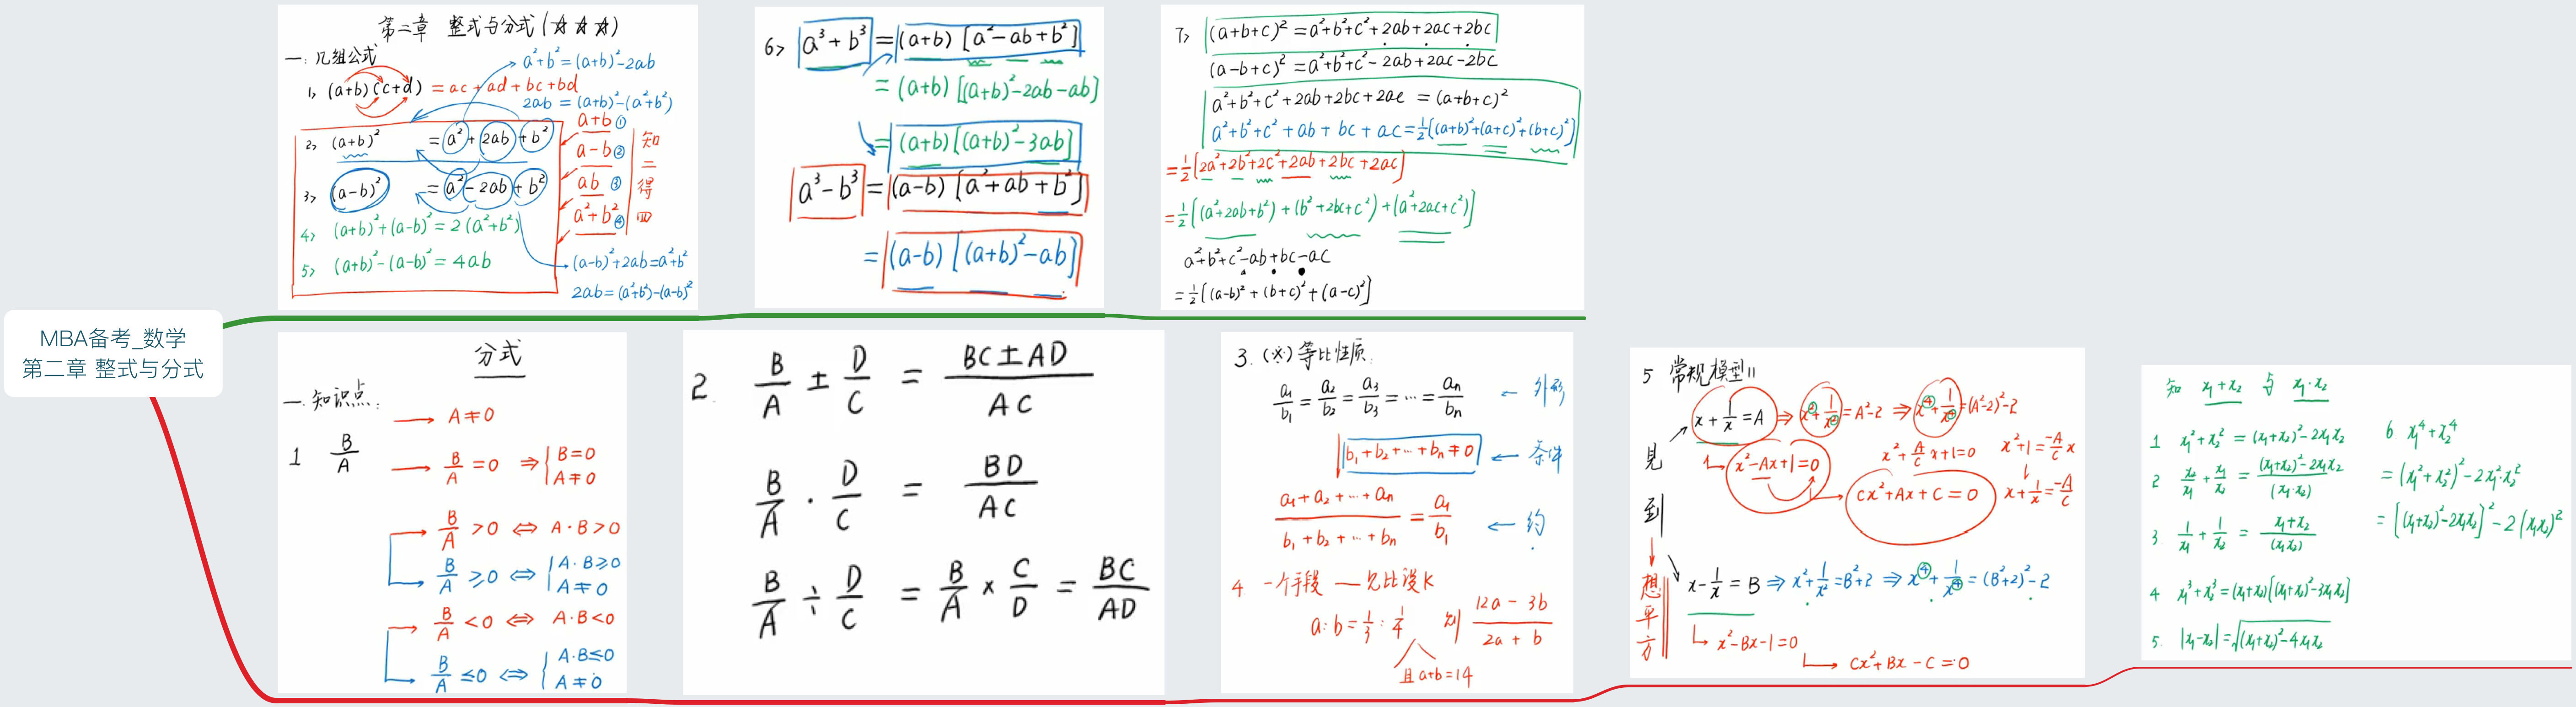 MBA备考_数学
第二章 整式与分式
第二章 整式与分式(☆☆☆)
一. 几组公式
1> (a+b)(c+d) = ac + ad + bc + bd
a²+b²=(a+b)²-2ab
2ab = (a+b)²-(a²+b²)
2> (a+b)² = a² + 2ab + b²
3> (a-b)² = a² - 2ab + b²
4> (a+b)²+(a-b)² = 2(a²+b²)
5> (a+b)²-(a-b)² = 4ab
a+b ①
a-b ②
ab ③
a²+b² ④
知二得四
(a-b)²+2ab=a²+b²
2ab=(a²+b²)-(a-b)²
6> a³+b³ = (a+b)[a²-ab+b²]
= (a+b)[(a+b)²-2ab-ab]
= (a+b)[(a+b)²-3ab]
a³-b³ = (a-b)[a²+ab+b²]
= (a-b)[(a+b)²-ab]
7> (a+b+c)² = a²+b²+c²+2ab+2ac+2bc
(a-b+c)² = a²+b²+c²-2ab+2ac-2bc
a²+b²+c²+2ab+2bc+2ac = (a+b+c)²
a²+b²+c²+ab+bc+ac=½[(a+b)²+(a+c)²+(b+c)²]
=½[2a²+2b²+2c²+2ab+2bc+2ac]
=½[(a²+2ab+b²)+(b²+2bc+c²)+(a²+2ac+c²)]
a²+b²+c²-ab+bc-ac
=½[(a-b)²+(b+c)²+(a-c)²]
分式
一. 知识点:
1 B/A
→ A≠0
→ B/A=0 ⇒ {B=0 A≠0
→ B/A>0 ⇔ A·B>0
→ B/A≥0 ⇔ {A·B≥0 A≠0
→ B/A<0 ⇔ A·B<0
→ B/A≤0 ⇔ {A·B≤0 A≠0
2. B/A ± D/C = (BC±AD)/AC
B/A · D/C = BD/AC
B/A ÷ D/C = B/A × C/D = BC/AD
3. (※) 等比性质:
a₁/b₁ = a₂/b₂ = a₃/b₃ = … = aₙ/bₙ ← 外形
b₁+b₂+…+bₙ≠0 ← 条件
(a₁+a₂+…+aₙ)/(b₁+b₂+…+bₙ) = a₁/b₁ ← 约
4 一个手段 — 见比设K
a:b=1/3:1/4 则 (12a-3b)/(2a+b)
且a+b=14
5 常规模型11
见到→想平方
x+1/x=A ⇒ x²+1/x²=A²-2 ⇒ x⁴+1/x⁴=(A²-2)²-2
x²-Ax+1=0
x²+A/C x+1=0
x²+1=-A/C x
Cx²+Ax+C=0
x+1/x=-A/C
x-1/x=B ⇒ x²+1/x²=B²+2 ⇒ x⁴+1/x⁴=(B²+2)²-2
x²-Bx-1=0
Cx²+Bx-C=0
知 x₁+x₂ 与 x₁·x₂
1 x₁²+x₂²=(x₁+x₂)²-2x₁x₂
2 x₂/x₁+x₁/x₂=((x₁+x₂)²-2x₁x₂)/(x₁·x₂)
3 1/x₁+1/x₂=(x₁+x₂)/(x₁x₂)
4 x₁³+x₂³=(x₁+x₂)[(x₁+x₂)²-3x₁x₂]
5. |x₁-x₂|=√((x₁+x₂)²-4x₁x₂)
6 x₁⁴+x₂⁴
=(x₁²+x₂²)²-2x₁²·x₂²
=[(x₁+x₂)²-2x₁x₂]²-2(x₁x₂)²